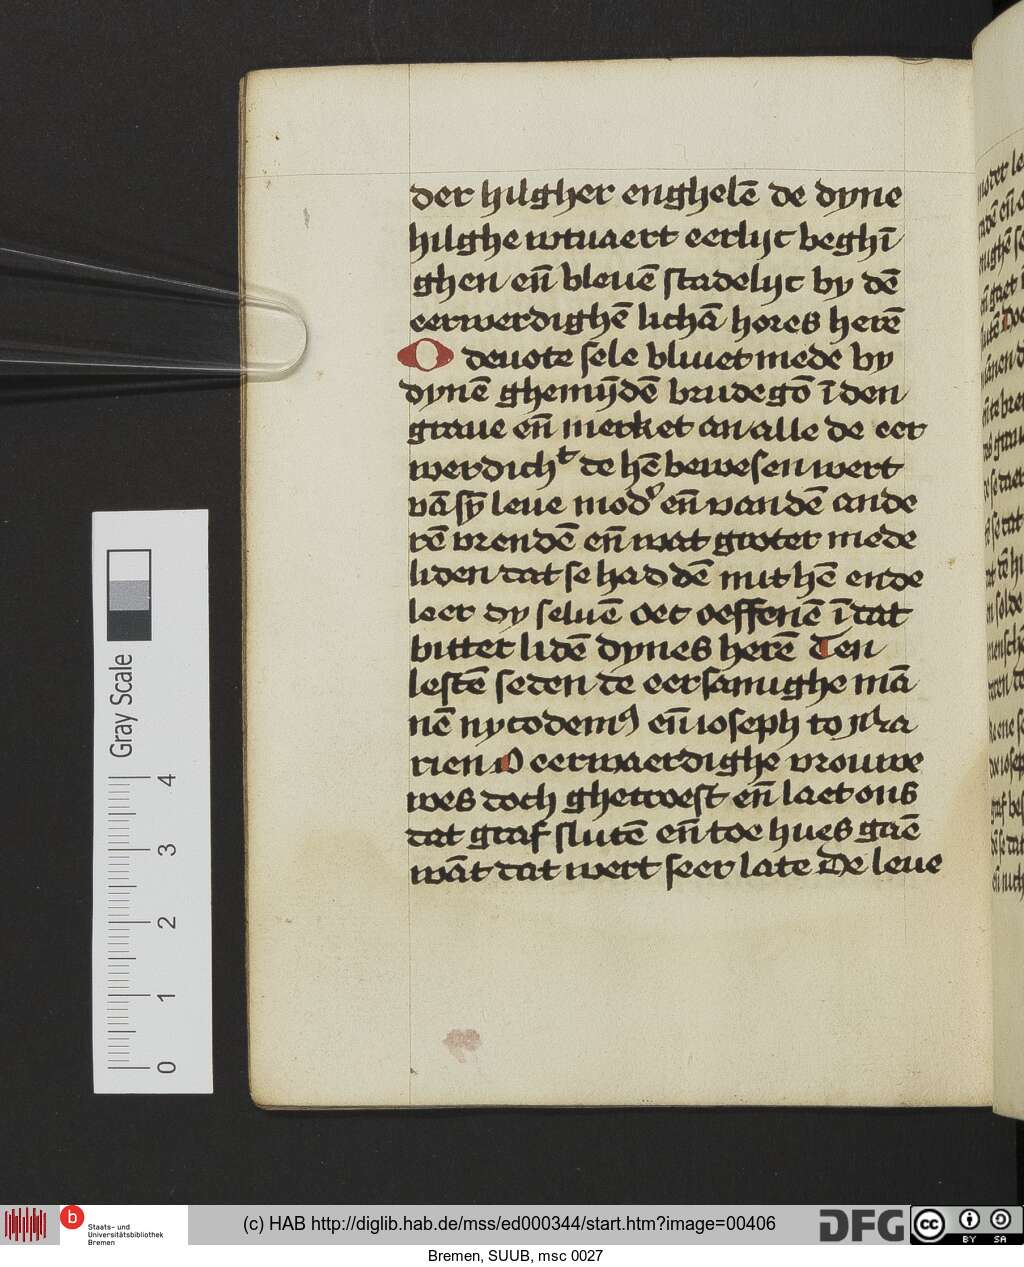 der hilgher enghelē de dyne
hilghe wtuaert eerlijc beghī
ghen eñ bleuē stadelijc by dē
eerwerdighē lichā hores herē
O deuote sele bliuet mede by
dynē ghemȳdē brudegō ī den
graue eñ merket an alle de eer
werdichᵗ de hē bewesen wert
vā sȳ leue mod' eñ van dē ande
rē vrendē eñ wat groter mede
liden dat se had dē mit hē ende
leer dy seluē oec oeffenē ī dat
bitter lidē dynes herē Ten
lestē seden de eersamighe mā
nē nycodemꝰ eñ ioseph to Ma
rien O eerwaerdighe vrouwe
wes doch ghetroest eñ laet ons
dat graf slutē eñ toe hues gaē
wāt dat wert seer late De leue
Gray Scale
0 1 2 3 4
b
Staats- und
Universitätsbibliothek
Bremen
(c) HAB http://diglib.hab.de/mss/ed000344/start.htm?image=00406
DFG
cc
BY SA
Bremen, SUUB, msc 0027